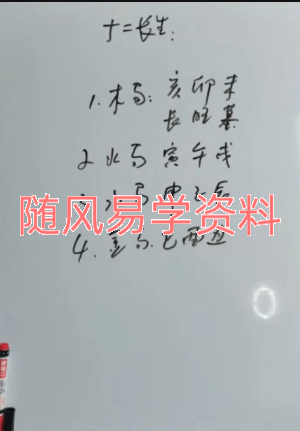 十二长生:
1. 木局: 亥卯未
长旺墓
2 火局 寅午戌
3. 水局 申子辰
随风易学资料
4. 金局. 巳酉丑